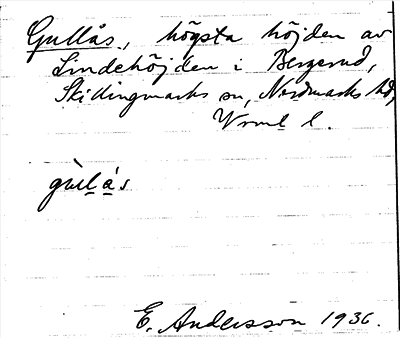 Gullås, högsta höjden av
Lindehöjden i Bergerud,
Skillingmarks sn, Nordmarks hd,
Vrml l.
gùlås
E. Andersson 1936.